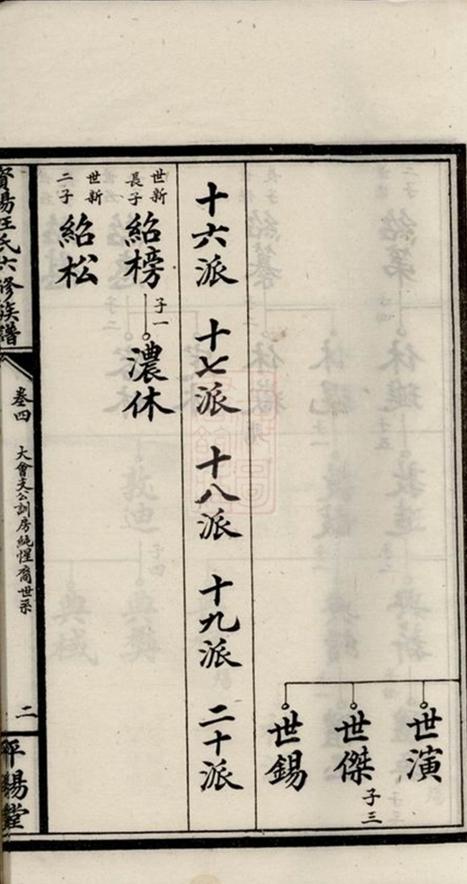 世演
世傑 子三
世錫
十六派 十七派 十八派 十九派 二十派
世新長子 紹榜 子一 濃休
世新二子 紹松
資陽汪氏六修族譜
卷四 大會支公訓房純惺裔世系 二
平陽堂